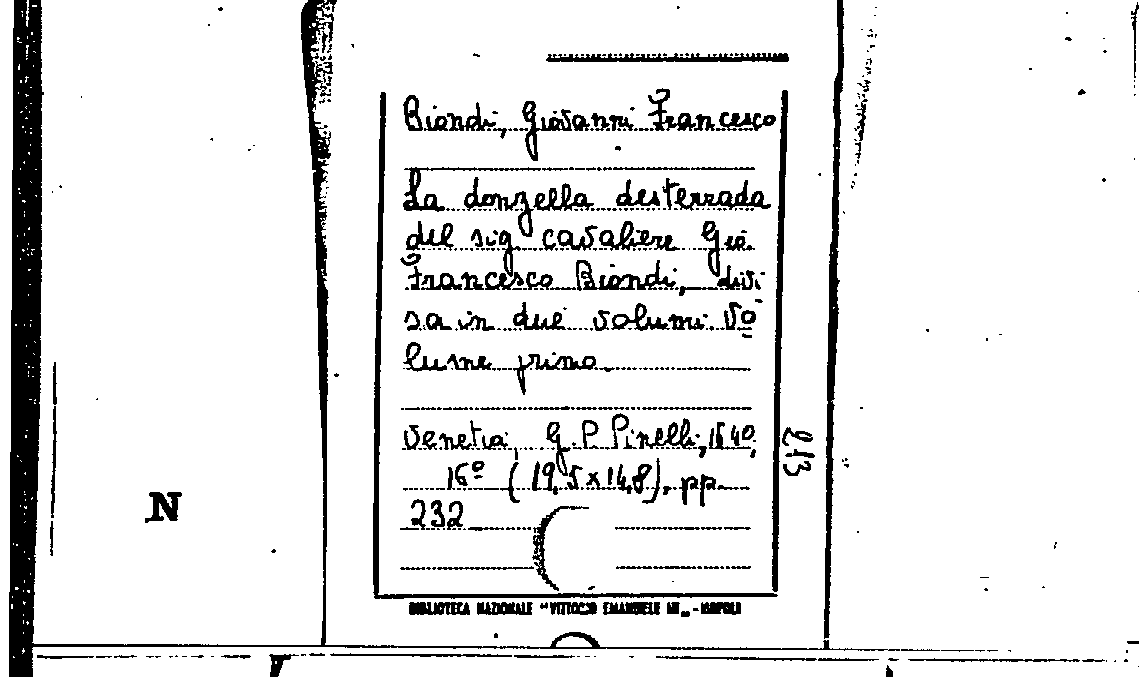 Biondi, Giovanni Francesco
La donzella desterrada
del sig. cavaliere Gio.
Francesco Biondi, divi
sa in due volumi. Vo
lume primo.
Venetia, G.P. Pinelli, 1640,
16º (19,5x14,8), pp.
232
213
N
BIBLIOTECA NAZIONALE "VITTORIO EMANUELE III" - NAPOLI